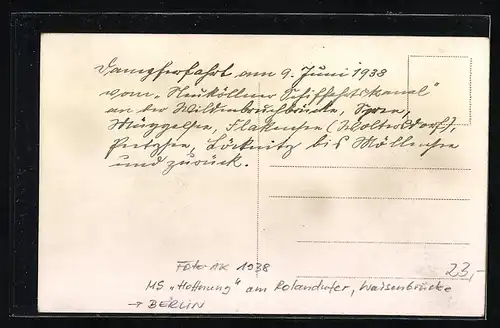 Dampferfahrt am 9. Juni 1938
vom „Neuköllner Schiffahrtskanal"
an der Wildenbruchbrücke, Spree,
Müggelsee, Flakensee (Woltersdorf),
Peetzsee, Löcknitz bis Möllensee
und zurück.
Foto-AK 1938
23,-
MS „Hoffnung" am Rolandufer, Waisenbrücke
→ BERLIN